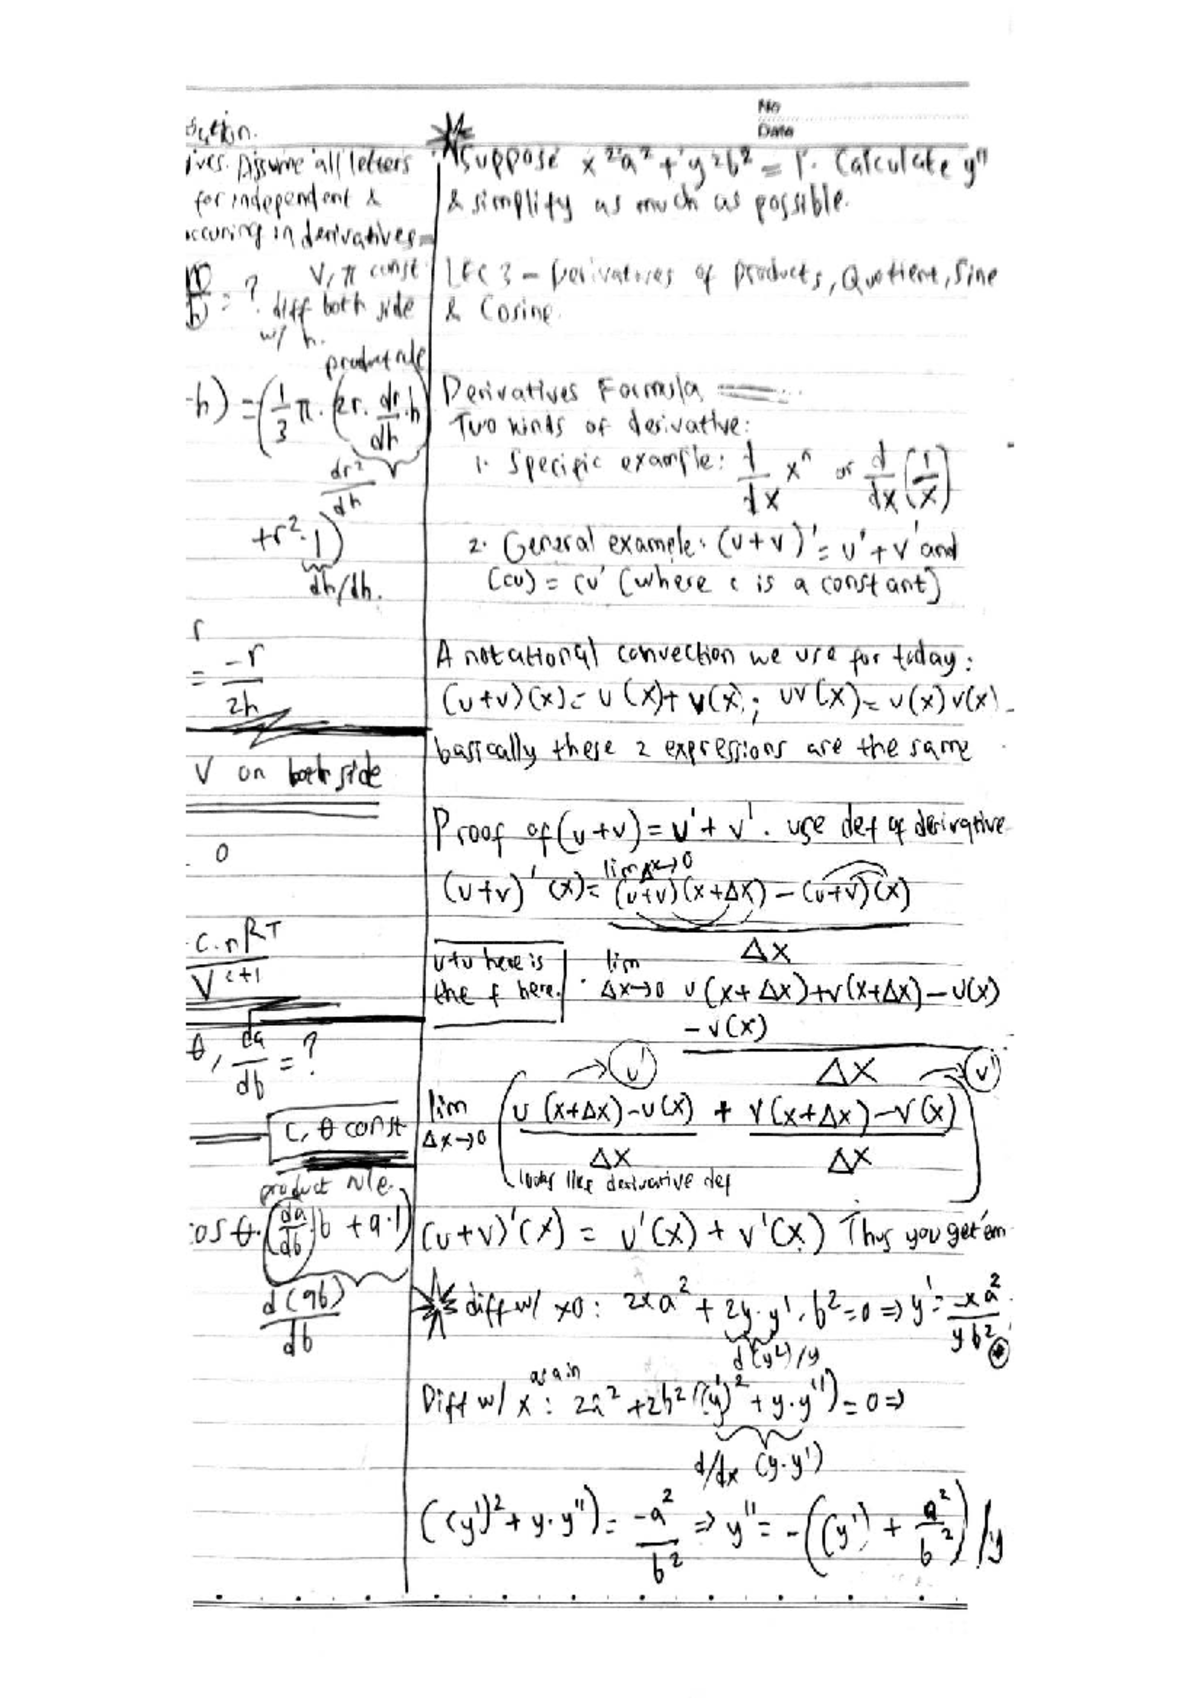 No
Date
ives. Assume all letters
for independent &
occuring in derivatives
= ? V, π const
diff both side
w/ h.
product rule
h) = (1/3 π · (2r · dr/dh · h)
dr²/dh
+ r² · 1)
dh/dh.
r
= -r/2h
V on both side
0
C · nRT / V^(c+1)
θ, da/db = ?
C, θ const
product rule.
cos θ · ((da/db) b + a · 1)
d(ab)/db
Suppose x²a² + y²b² = 1. Calculate y''
& simplify as much as possible.
LEC 3 - Derivatives of Products, Quotient, Sine
& Cosine.
Derivatives Formula
Two kinds of derivative:
1. Specific example: d/dx xⁿ or d/dx (1/x)
2. General example: (u+v)' = u' + v' and
(cu) = cu' (where c is a constant)
A notational convection we use for today:
(u+v)(x) = u(x) + v(x); uv(x) = u(x)v(x)
basically these 2 expressions are the same
Proof of (u+v) = u' + v'. use def of derivative
(u+v)'(x) = lim Δx→0 (u+v)(x+Δx) - (u+v)(x) / Δx
u+v here is
the f here.
lim Δx→0 u(x+Δx)+v(x+Δx)-u(x)
-v(x) / Δx
→ u' → v'
lim Δx→0 (u(x+Δx)-u(x) / Δx + v(x+Δx)-v(x) / Δx)
looks like derivative def
(u+v)'(x) = u'(x) + v'(x) Thus you get em
diff w/ x0: 2xa² + 2y·y'·b² = 0 ⇒ y' = -xa²/yb²
d(y²)/y
again
Diff w/ x: 2a² + 2b²((y')² + y·y'') = 0 ⇒
d/dx (y·y')
((y')² + y·y'') = -a²/b² ⇒ y'' = -((y') + a²/b²)/y